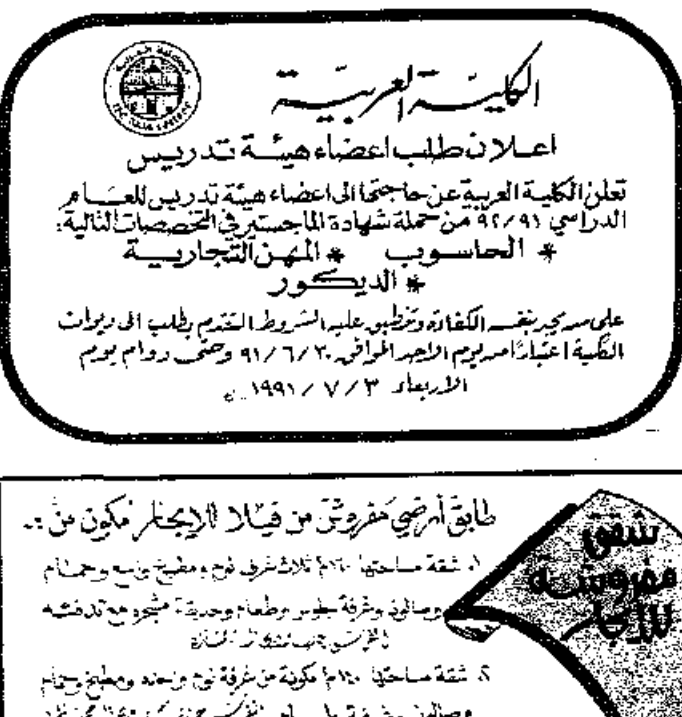 الكليـــة العربيـــة
اعـلان طلب اعضاء هيئـة تـدريـس
تعلن الكلية العربية عن حاجتها الى اعضاء هيئة تدريس للعــام
الدراسي ٩٢/٩١ من حملة شهادة الماجستير في التخصصات التالية:
* الحاسـوب * المهن التجاريــة
* الديـكـور
على من يجد بنفسه الكفاءة وتنطبق عليه الشروط التقدم بطلب الى ديوان
الكلية اعتبارًا من يوم الاحد الموافق ٩١/٦/٣٠ وحتى دوام يوم
الاربعاء ١٩٩١/٧/٣
شقق
مفروشـة
للإيجار
طابق أرضي مفروش من فيـلا للإيجار مكون من :-
١. شقة مساحتها ثلاث غرف نوم ومطبخ وحمـام
وصالون وغرفة جلوس وطعام وحديقة مشجره مع تدفئـه
٢. شقة مساحتها مكونة من غرفة نوم واحده ومطبخ وحمام